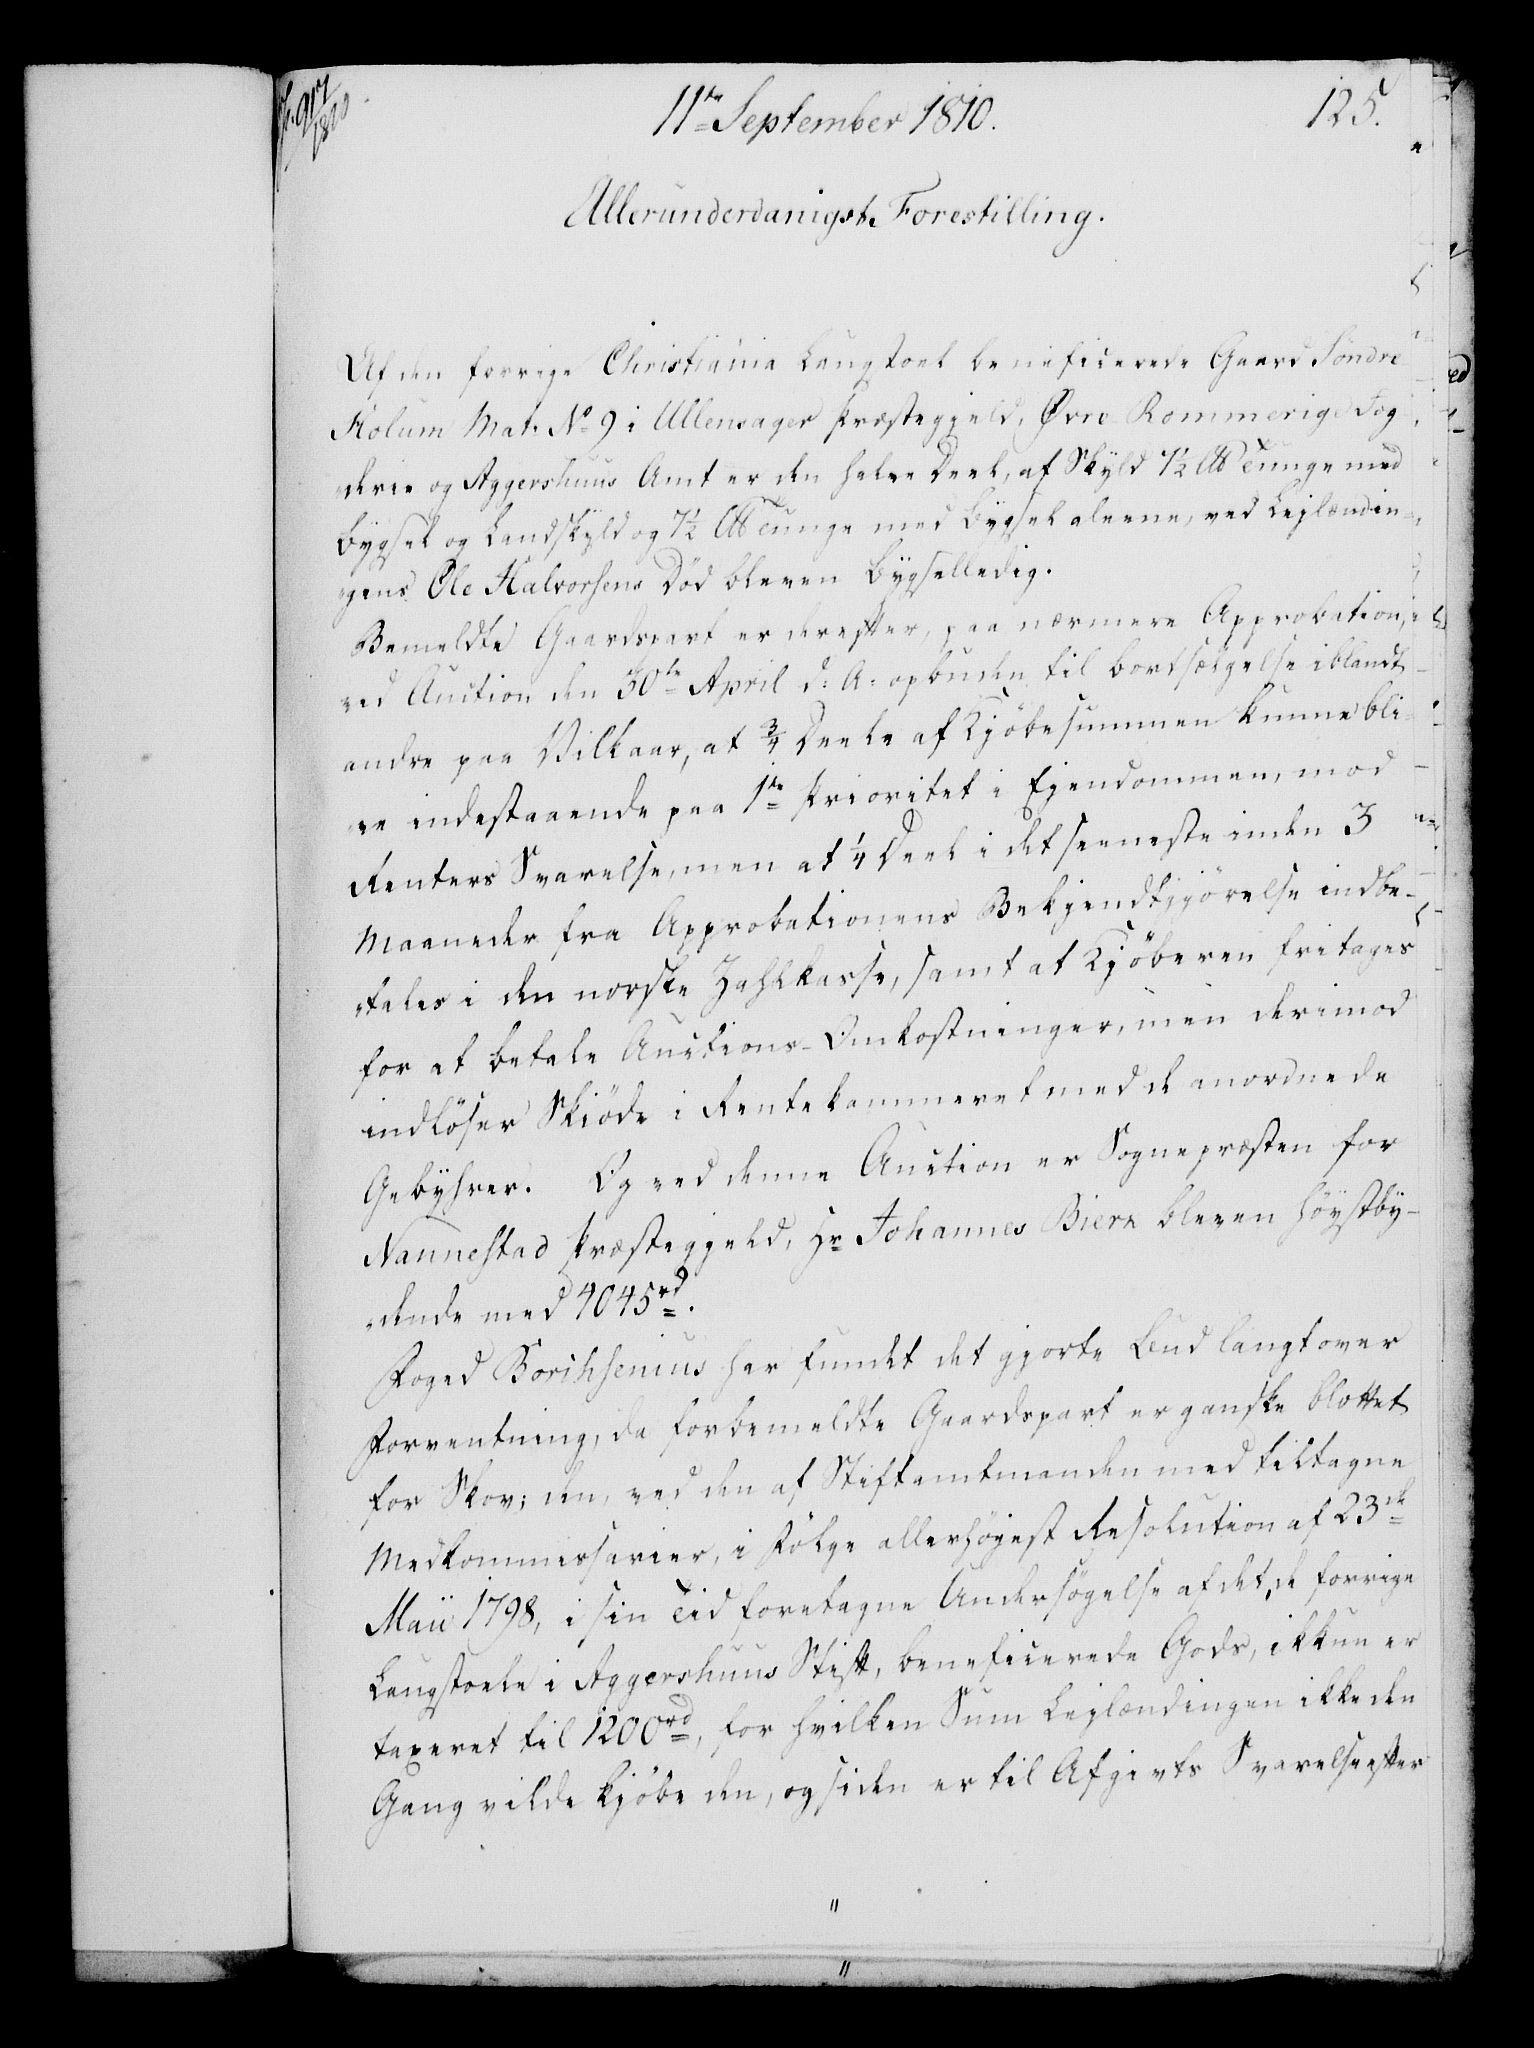 917
1810
11te September 1810.
125.
Allerunderdanigst Forestilling.
Af den forrige Christiania Laugstoel beneficerede Gaard Söndre
Holum Mat: No 9 i Ullensager Præstegjeld, Øvre Rommerige Fog
derie og Aggershuus Amt er den halve Deel, af Skyld 7½ L℔ Tunge med
Bygsel og Landskyld og 7½ L℔ Tunge med Bygsel aleene, ved Lejlændin-
gens Ole Halvorsens Död bleven bygselledig.
Bemeldte Gaardspart er derefter, paa nærmere Approbation,
ved Auction den 30te April d: A: opbuden til bortsælgelse iblandt
andre paa Vilkaar, at ¾ Deele af Kjöbesummen kunne bli-
ve indestaaende paa 1te Prioritet i Ejendommen, mod
Renters Svarelse, men at ¼ Deel i det seeneste inden 3
Maaneder fra Approbationens Bekjendtgjörelse indbe-
tales i den norske Zahlkasse, samt at Kjöberen fritages
for at betale Auctions-Omkostninger, men derimod
indlöser Skiöde i Rentekammeret med de anordnede
Gebyhrer. Og ved denne Auction er Sognepræsten for
Nannestad Præstegjeld, Hr Johannes Biern bleven höystby-
dende med 4045rd.
Foged Borchsenius har fundet det gjorte Bud langt over
Forventning, da forbemeldte Gaardspart er ganske blottet
for Skov; den, ved den af Stiftamtmanden med tiltagne
Medkommissarier, i Fölge allerhöjest Resolution af 23de
Maii 1798, i sin Tid foretagne Undersögelse af det, de forrige
Laugstoele i Aggershuus Stift, beneficerede Gods, ikkun er
taxeret til 1200rd, for hvilken Sum Lejlændingen ikke den
Gang vilde kjöbe den, og siden er til Afgivts Svarelse efter
"
"